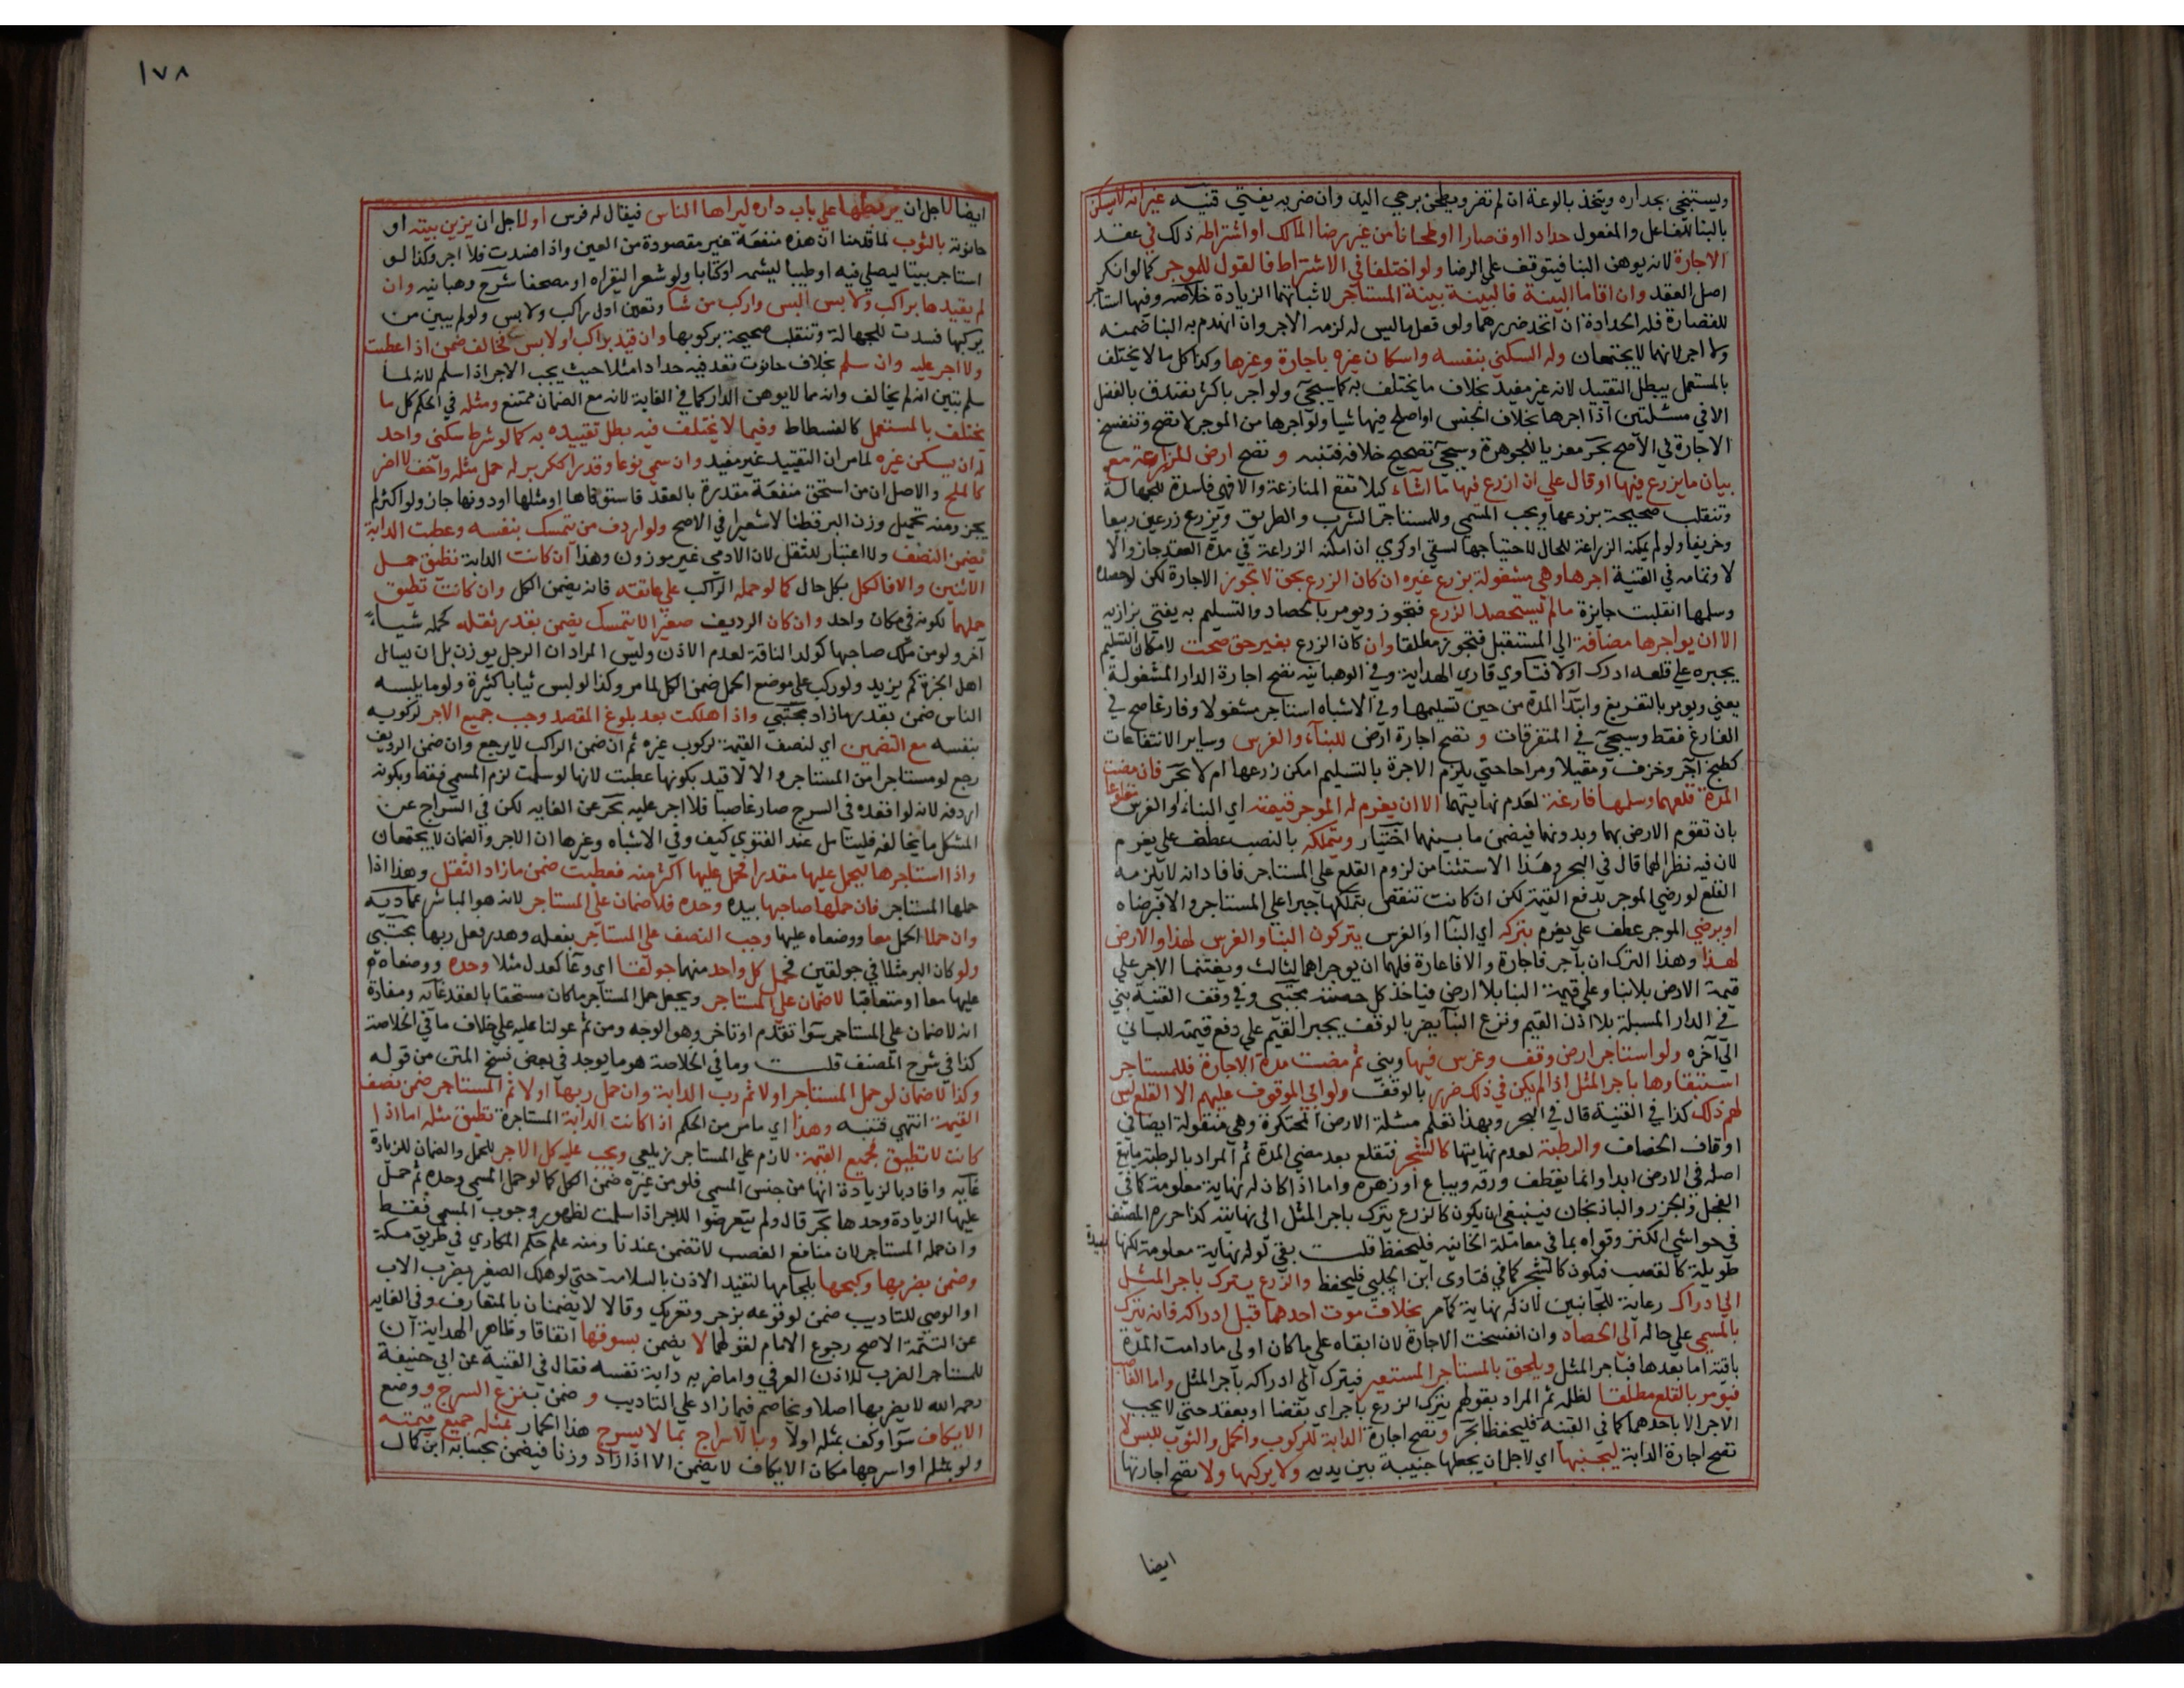 ويستنجي بجداره ويتخذ بالوعة ان لم تضر ويطحن برحي اليد وان ضر به يفتي قنيه غير انه لا يسكن
بالبنا للفاعل والمفعول حدادا او قصارا او طحانا من غير رضا المالك او اشتراطه ذلك في عقد
الاجارة لانه يوهن البنا فيتوقف علي الرضا ولو اختلفا في الاشتراط فالقول للموجر كما لو انكر
اصل العقد وان اقاما البينة فالبينة بينة المستاجر لاثباتها الزيادة خلاصه وفيها استاجر
للقصارة فله الحدادة ان اتحد ضررهما ولو فعل ما ليس له لزمه الاجر وان انهدم به البنا ضمنه
ولا اجر لانهما لا يجتمعان وله السكني بنفسه واسكان غيره باجارة وغيرها وكذا كل ما لا يختلف
بالمستعمل يبطل التقييد لانه غير مفيد بخلاف ما يختلف به كما سيجي ولو اجر باكثر تصدق بالفضل
الا في مسئلتين اذا اجرها بخلاف الجنس او اصلح فيها شيا ولو اجرها من الموجر لا تصح وتنفسخ
الاجارة في الاصح بحر معزيا للجوهرة وسيجي تصحيح خلافه فتنبه و تصح ارض للزراعة مع
بيان ما يزرع فيها او قال علي ان ازرع فيها ما اشاء كيلا تقع المنازعة والا فهي فاسدة للجهالة
وتنقلب صحيحة بزرعها ويجب المسمي وللمستاجر الشرب والطريق ويزرع زرعين ربيعا
وخريفا ولو لم يمكنه الزراعة للحال لاحتياجها لسقي او كري ان امكنه الزراعة في مدة العقد جاز والا
لا وتمامه في القنية اجرها وهي مشغولة بزرع غيره ان كان الزرع بحق لا تجوز الاجارة لكن لو حصده
وسلمها انقلبت جايزة مالم يستحصد الزرع فتجوز ويومر بالحصاد والتسليم به يفتي بزازيه
الا ان يواجرها مضافة الي المستقبل فتجوز مطلقا وان كان الزرع بغير حق صحت لامكان التسليم
يجبره علي قلعه ادرك اولا فتاوي قاري الهداية وفي الوهبانيه تصح اجارة الدار المشغولة
يعني ويومر بالتفريغ وابتدا المدة من حين تسليمها وفي الاشباه استاجر مشغولا وفارغا صح في
الفارغ فقط وسيجي في المتفرقات و تصح اجارة ارض للبناء والغرس وساير الانتفاعات
كطبخ آجر وخزف ومقيلا ومراحا حتي يلزم الاجرة بالتسليم امكن زرعها ام لا بحر فان مضت
المدة قلعهما وسلمها فارغة لعدم نهايتهما الا ان يغرم له الموجر قيمته اي البناء او الغرس مقلوعا
بان تقوم الارض بهما وبدونهما فيضمن ما بينهما اختيار ويتملكه بالنصب عطف علي يغرم
لان فيه نظرا لهما قال في البحر وهذا الاستثنا من لزوم القلع علي المستاجر فافاد انه لا يلزمه
القلع لو رضي الموجر بدفع القيمة لكن ان كانت تنقص يتملكها جبرا علي المستاجر والا فبرضاه
او يرضي الموجر عطف علي يغرم بتركه اي البنا او الغرس يتركون البنا والغرس لهذا والارض
لهذا وهذا الترك ان باجر فاجارة والا فاعارة فلهما ان يوجراهما لثالث ويقتسما الاجر علي
قيمة الارض بلا بنا وعلي قيمة البنا بلا ارض فياخذ كل حصته مجتبي وفي وقف القنية بني
في الدار المسبلة بلا اذن القيم ونزع البنا يضر بالوقف يجبر القيم علي دفع قيمته للباني
الي آخره ولو استاجر ارض وقف وغرس فيها وبني ثم مضت مدة الاجارة فللمستاجر
استبقاوها باجر المثل اذا لم يكن في ذلك ضرر بالوقف ولو ابي الموقوف عليهم الا القلع ليس
لهم ذلك كذا في القنية قال في البحر وبهذا تعلم مسئلة الارض المحتكرة وهي منقولة ايضا في
اوقاف الخصاف والرطبة لعدم نهايتها كالشجر فتقلع بعد مضي المدة ثم المراد بالرطبة ما يبقي
اصله في الارض ابدا وانما يقطف ورقه ويباع او زهره واما اذا كان له نهاية معلومة كما في
الفجل والجزر والباذنجان فينبغي ان يكون كالزرع يترك باجر المثل الي نهايته كذا حرره المصنف
في حواشي الكنز وقواه بما في معاملة الخانيه فليحفظ قلت بقي لو له نهاية معلومة لكنها بعيدة
طويلة كالقصب فيكون كالشجر كما في فتاوي ابن الجلبي فليحفظ والزرع يترك باجر المثل
الي ادراك رعاية للجانبين لان له نهاية كما مر بخلاف موت احدهما قبل ادراكه فانه يترك
بالمسمي علي حاله الي الحصاد وان انفسخت الاجارة لان ابقاه علي ما كان اولي ما دامت المدة
باقية اما بعدها فباجر المثل ويلحق بالمستاجر المستعير فيترك الي ادراكه باجر المثل واما الغاصب
فيومر بالقلع مطلقا لظلمه ثم المراد بقولهم يترك الزرع باجر اي بقضا او بعقد حتي لا يجب
الاجر الا باحدهما كما في القنيه فليحفظ بحر وتصح اجارة الدابة للركوب والحمل والثوب للبس لا
تصح اجارة الدابة ليجنبها اي لاجل ان يجعلها جنيبة بين يديه ولا يركبها ولا تصح اجارتها
ايضا
١٧٨
ايضا لاجل ان يربطها علي باب داره ليراها الناس فيقال له فرس او لاجل ان يزين بيته او
حانوته بالثوب لما قدمنا ان هذه منفعة غير مقصودة من العين واذا فسدت فلا اجر وكذا لو
استاجر بيتا ليصلي فيه او طيبا ليشمه او كتابا ولو شعرا ليقراه او مصحفا شرح وهبانيه وان
لم يقيدها براكب ولا بس البس واركب من شا وتعين اول راكب ولابس ولو لم يبين من
يركبها فسدت للجهالة وتنقلب صحيحة بركوبها وان قيد براكب او لابس فخالف ضمن اذا عطبت
ولا اجر عليه وان سلم بخلاف حانوت تقعد فيه حدادا مثلا حيث يجب الاجر اذا سلم لانه لما
سلم تبين انه لم يخالف وانه مما لا يوهن الدار كما في الغاية لانه مع الضمان ممتنع ومثله في الحكم كل ما
يختلف بالمستعمل كالفسطاط وفيما لا يختلف فيه بطل تقييده به كما لو شرط سكني واحد
له ان يسكن غيره لما مر ان التقييد غير مفيد وان سمي نوعا وقدرا ككر بر له حمل مثله واخف لا اضر
كالملح والاصل ان من استحق منفعة مقدرة بالعقد فاستوفاها او مثلها او دونها جاز ولو اكثر لم
يجز ومنه تحميل وزن البر قطنا لا شعيرا في الاصح ولو اردف من يتمسك بنفسه وعطبت الدابة
يضمن النصف ولا اعتبار للثقل لان الادمي غير موزون وهذا ان كانت الدابة تطيق حمل
الاثنين والا فالكل بكل حال كما لو حمله الراكب علي عاتقه فانه يضمن الكل وان كانت تطيق
حملهما لكونه في مكان واحد وان كان الرديف صغيرا لا يتمسك يضمن بقدر ثقله كحمله شياء
آخر ولو من ملك صاحبها كولد الناقة لعدم الاذن وليس المراد ان الرجل يوزن بل ان يسال
اهل الخبرة كم يزيد ولو ركب علي موضع الحمل ضمن الكل لما مر وكذا لو لبس ثيابا كثيرة ولو ما يلبسه
الناس ضمن بقدر ما زاد مجتبي واذا هلكت بعد بلوغ المقصد وجب جميع الاجر لركوبه
بنفسه مع التضمين اي لنصف القيمة لركوب غيره ثم ان ضمن الراكب لا يرجع وان ضمن الرديف
رجع لو مستاجرا من المستاجر والا لا قيد بكونها عطبت لانها لو سلمت لزم المسمي فقط وبكونه
اردفه لانه لو اقعده في السرج صار غاصبا فلا اجر عليه بحر عن الغايه لكن في السراج عن
المشكل ما يخالفه فليتامل عند الفتوي كيف وفي الاشباه وغيرها ان الاجر والضمان لا يجتمعان
واذا استاجرها ليحمل عليها مقدرا فحمل عليها اكثر منه فعطبت ضمن ما زاد الثقل وهذا اذا
حملها المستاجر فان حملها صاحبها بيده وحده فلا ضمان علي المستاجر لانه هو المباشر عماديه
وان حملا الحمل معا ووضعاه عليها وجب النصف علي المستاجر بفعله وهدر فعل ربها مجتبي
ولو كان البر مثلا في جولقين فحمل كل واحد منهما جولقا اي وعا كعدل مثلا وحده ووضعاهم
عليها معا او متعاقبا لا ضمان علي المستاجر ويجعل حمل المستاجر ما كان مستحقا بالعقد غايه ومفاده
انه لا ضمان علي المستاجر سوا تقدم او تاخر وهو الوجه ومن ثم عولنا عليه علي خلاف ما في الخلاصة
كذا في شرح المصنف قلت وما في الخلاصة هو ما يوجد في بعض نسخ المتن من قوله
وكذا لا ضمان لو حمل المستاجر اولا ثم رب الدابة وان حمل ربها اولا ثم المستاجر ضمن نصف
القيمة انتهي فتنبه وهذا اي ما مر من الحكم اذا كانت الدابة المستاجرة تطيق مثله اما اذا
كانت لا تطيق فجميع القيمة لازم علي المستاجر زيلعي ويجب عليه كل الاجر للحمل والضمان للزيادة
غايه وافاد بالزيادة انها من جنس المسمي فلو من غيره ضمن الكل كما لو حمل المسمي وحده ثم حمل
عليها الزيادة وحدها بحر قال ولم يتعرضوا للاجر اذا سلمت لظهور وجوب المسمي فقط
وان حمله المستاجر لان منافع الغصب لا تضمن عندنا ومنه علم حكم المكاري في طريق مكة
وضمن بضربها وكبحها بلجامها لتقيد الاذن بالسلامة حتي لو هلك الصغير بضرب الاب
او الوصي للتاديب ضمن لوقوعه بزجر وتعريك وقالا لا يضمنان بالمتعارف وفي الغايه
عن التتمة الاصح رجوع الامام لقولهما لا يضمن بسوقها اتفاقا وظاهر الهداية ان
للمستاجر الضرب للاذن العرفي واما ضربه دابة نفسه فقال في القنية عن ابي حنيفة
رحمه الله لا يضربها اصلا ويخاصم فيما زاد علي التاديب و ضمن بنزع السرج ووضع
الايكاف سوا وكف بمثله اولا وبالاسراج بما لا يسرج هذا الحمار بمثله جميع قيمته
ولو بمثله او اسرجها مكان الايكاف لا يضمن الا اذا زاد وزنا فيضمن بحسابه ابن كمال